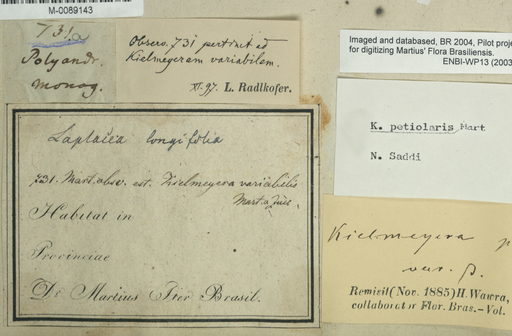 M-0089143
731a
Polyandr.
monog.
Observ. 731 pertinet ad
Kielmeyeram variabilem.
XI. 97. L. Radlkofer.
Imaged and databased, BR 2004, Pilot proje
for digitizing Martius' Flora Brasiliensis.
ENBI-WP13 (2003
K. petiolaris Mart
N. Saddi
Laplacea longifolia
731. Mart. obsv. est. Kielmeyera variabilis
Mart. &
Habitat in
Provinciae
Dr Martius Iter Brasil.
Kielmeyera p
var. β.
Remisit (Nov. 1885) H. Wawra,
collaborator Flor. Bras. - Vol.